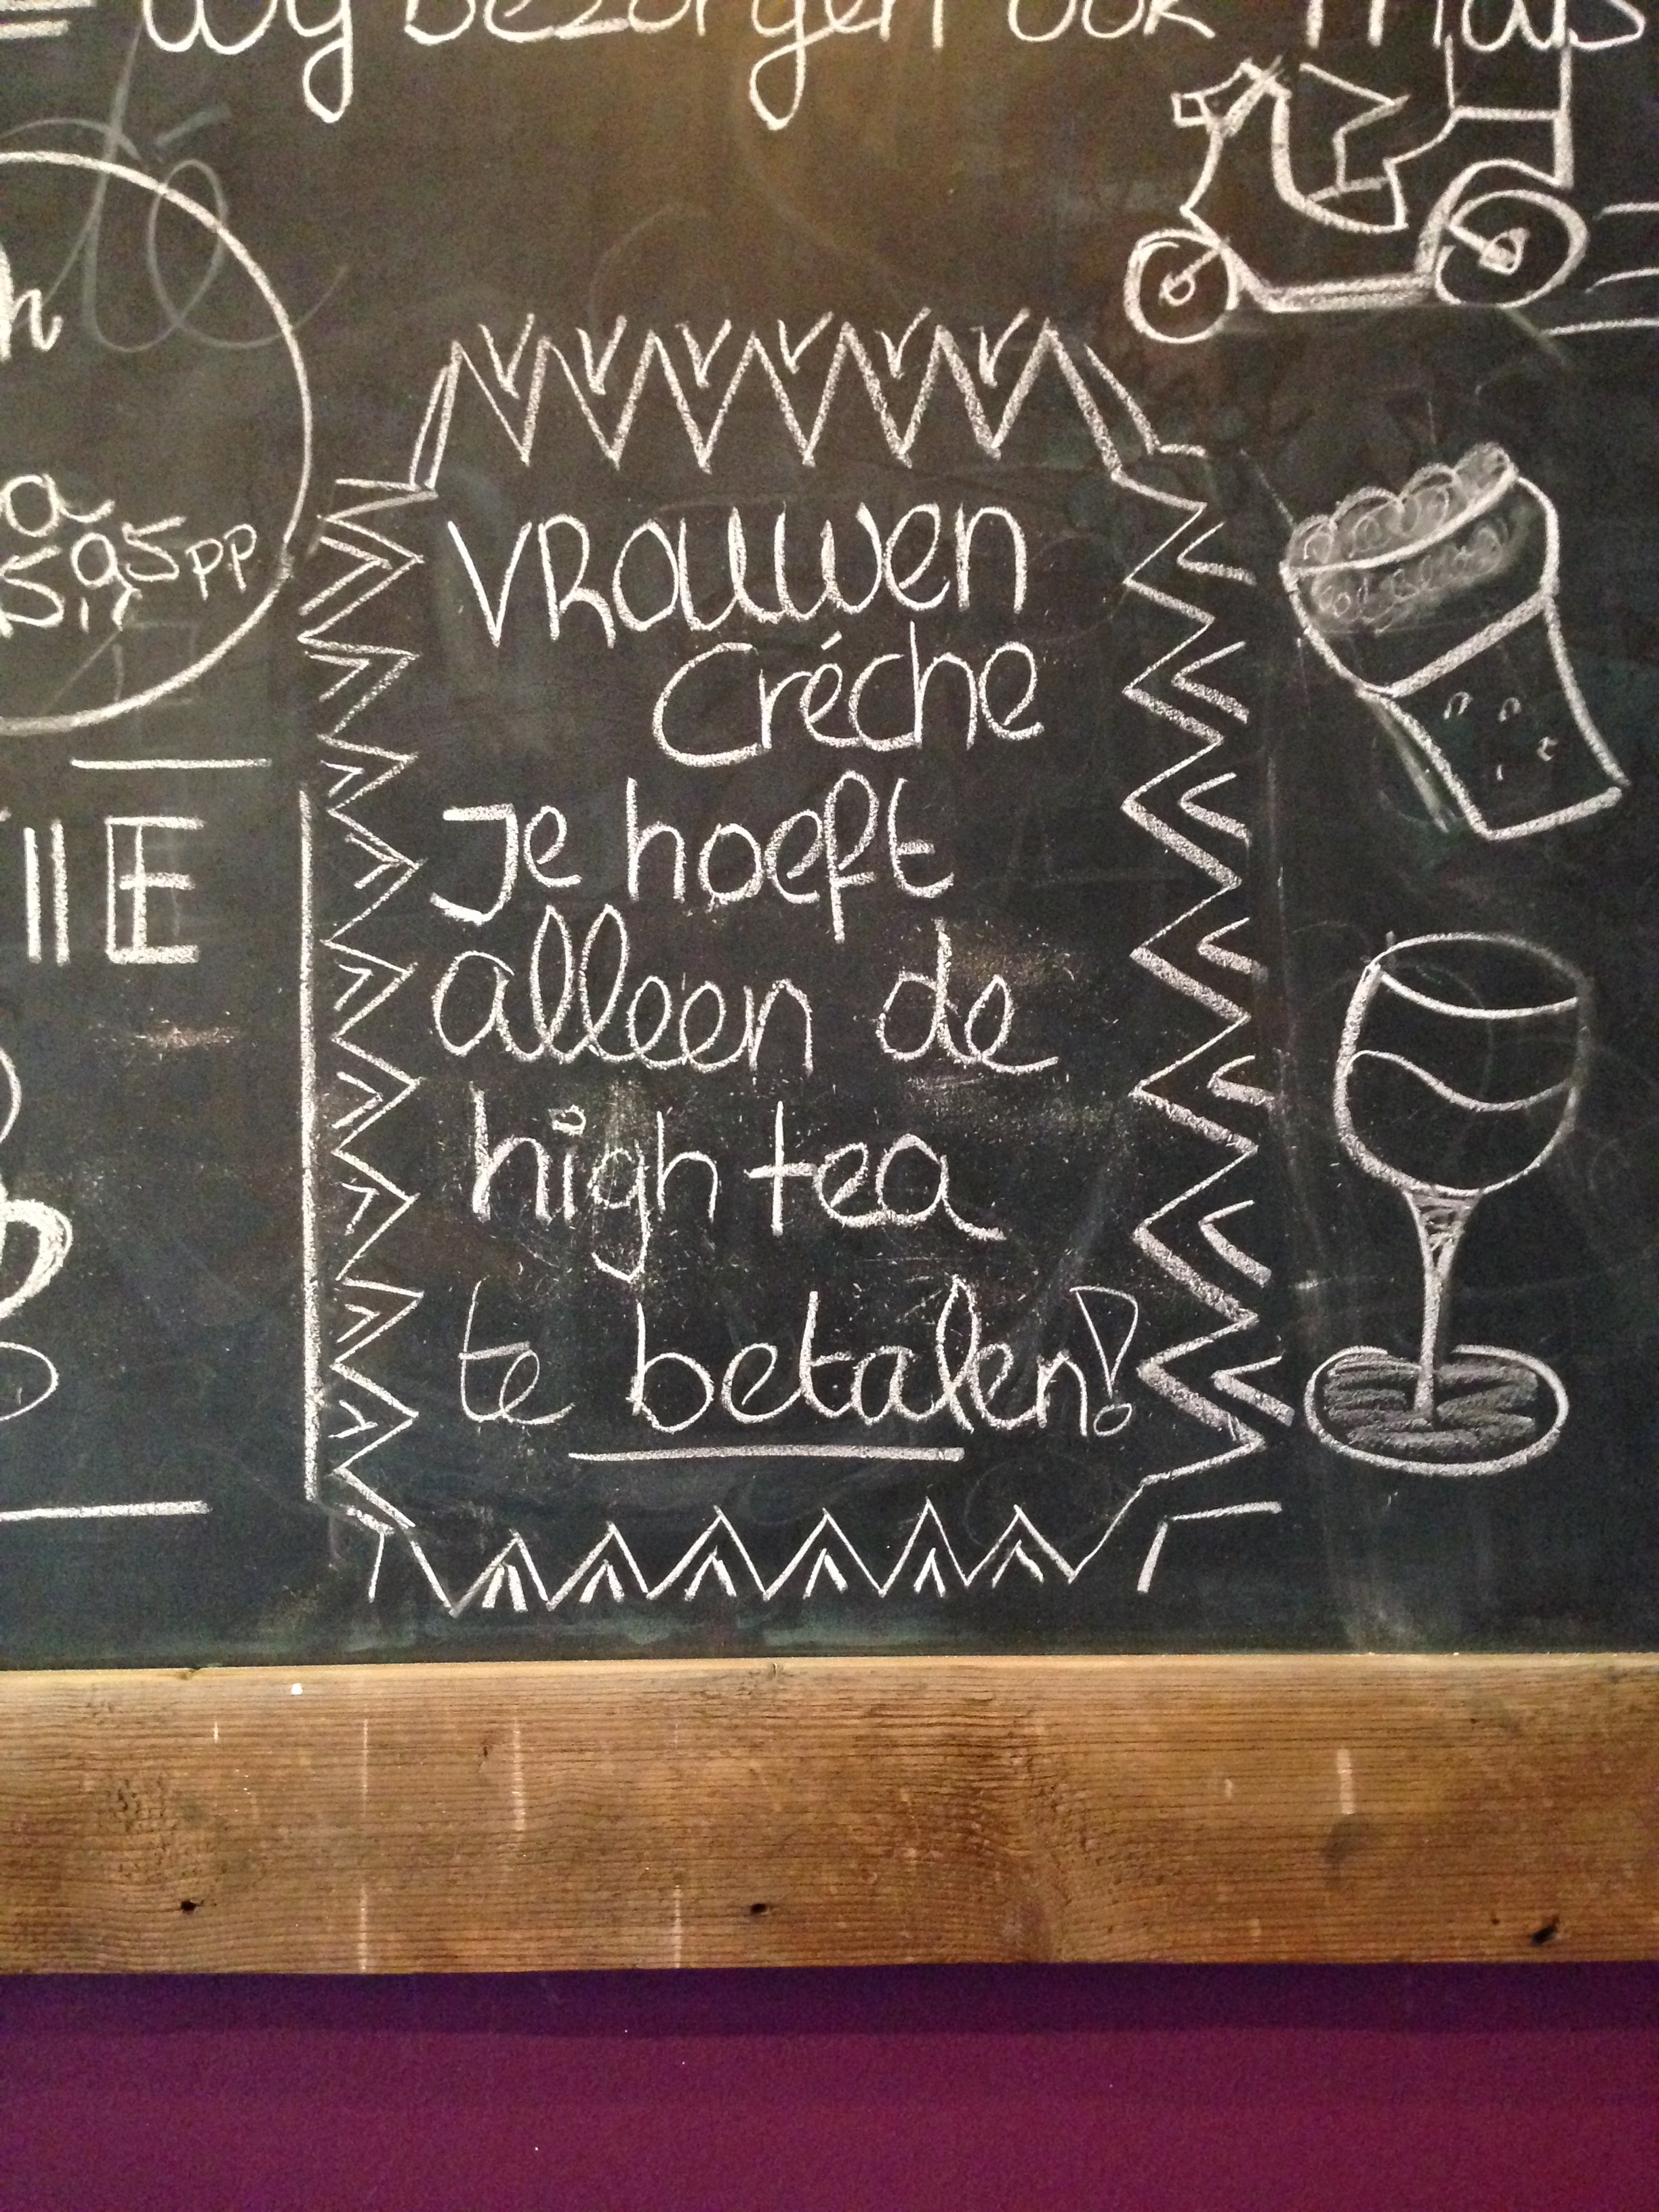 wij bezorgen ook thuis
a
5,95 pp
IIE
VROUWEN
Créche
Je hoeft
alleen de
high tea
te betalen!